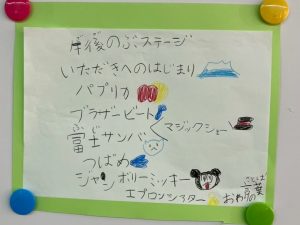 午後のぶステージ
いただきへのはじまり
パプリカ
ブラザービート
マジックショー
富士サンバ
つばめ
ジャンボリーミッキー
エプロンシアター
おわりの言葉